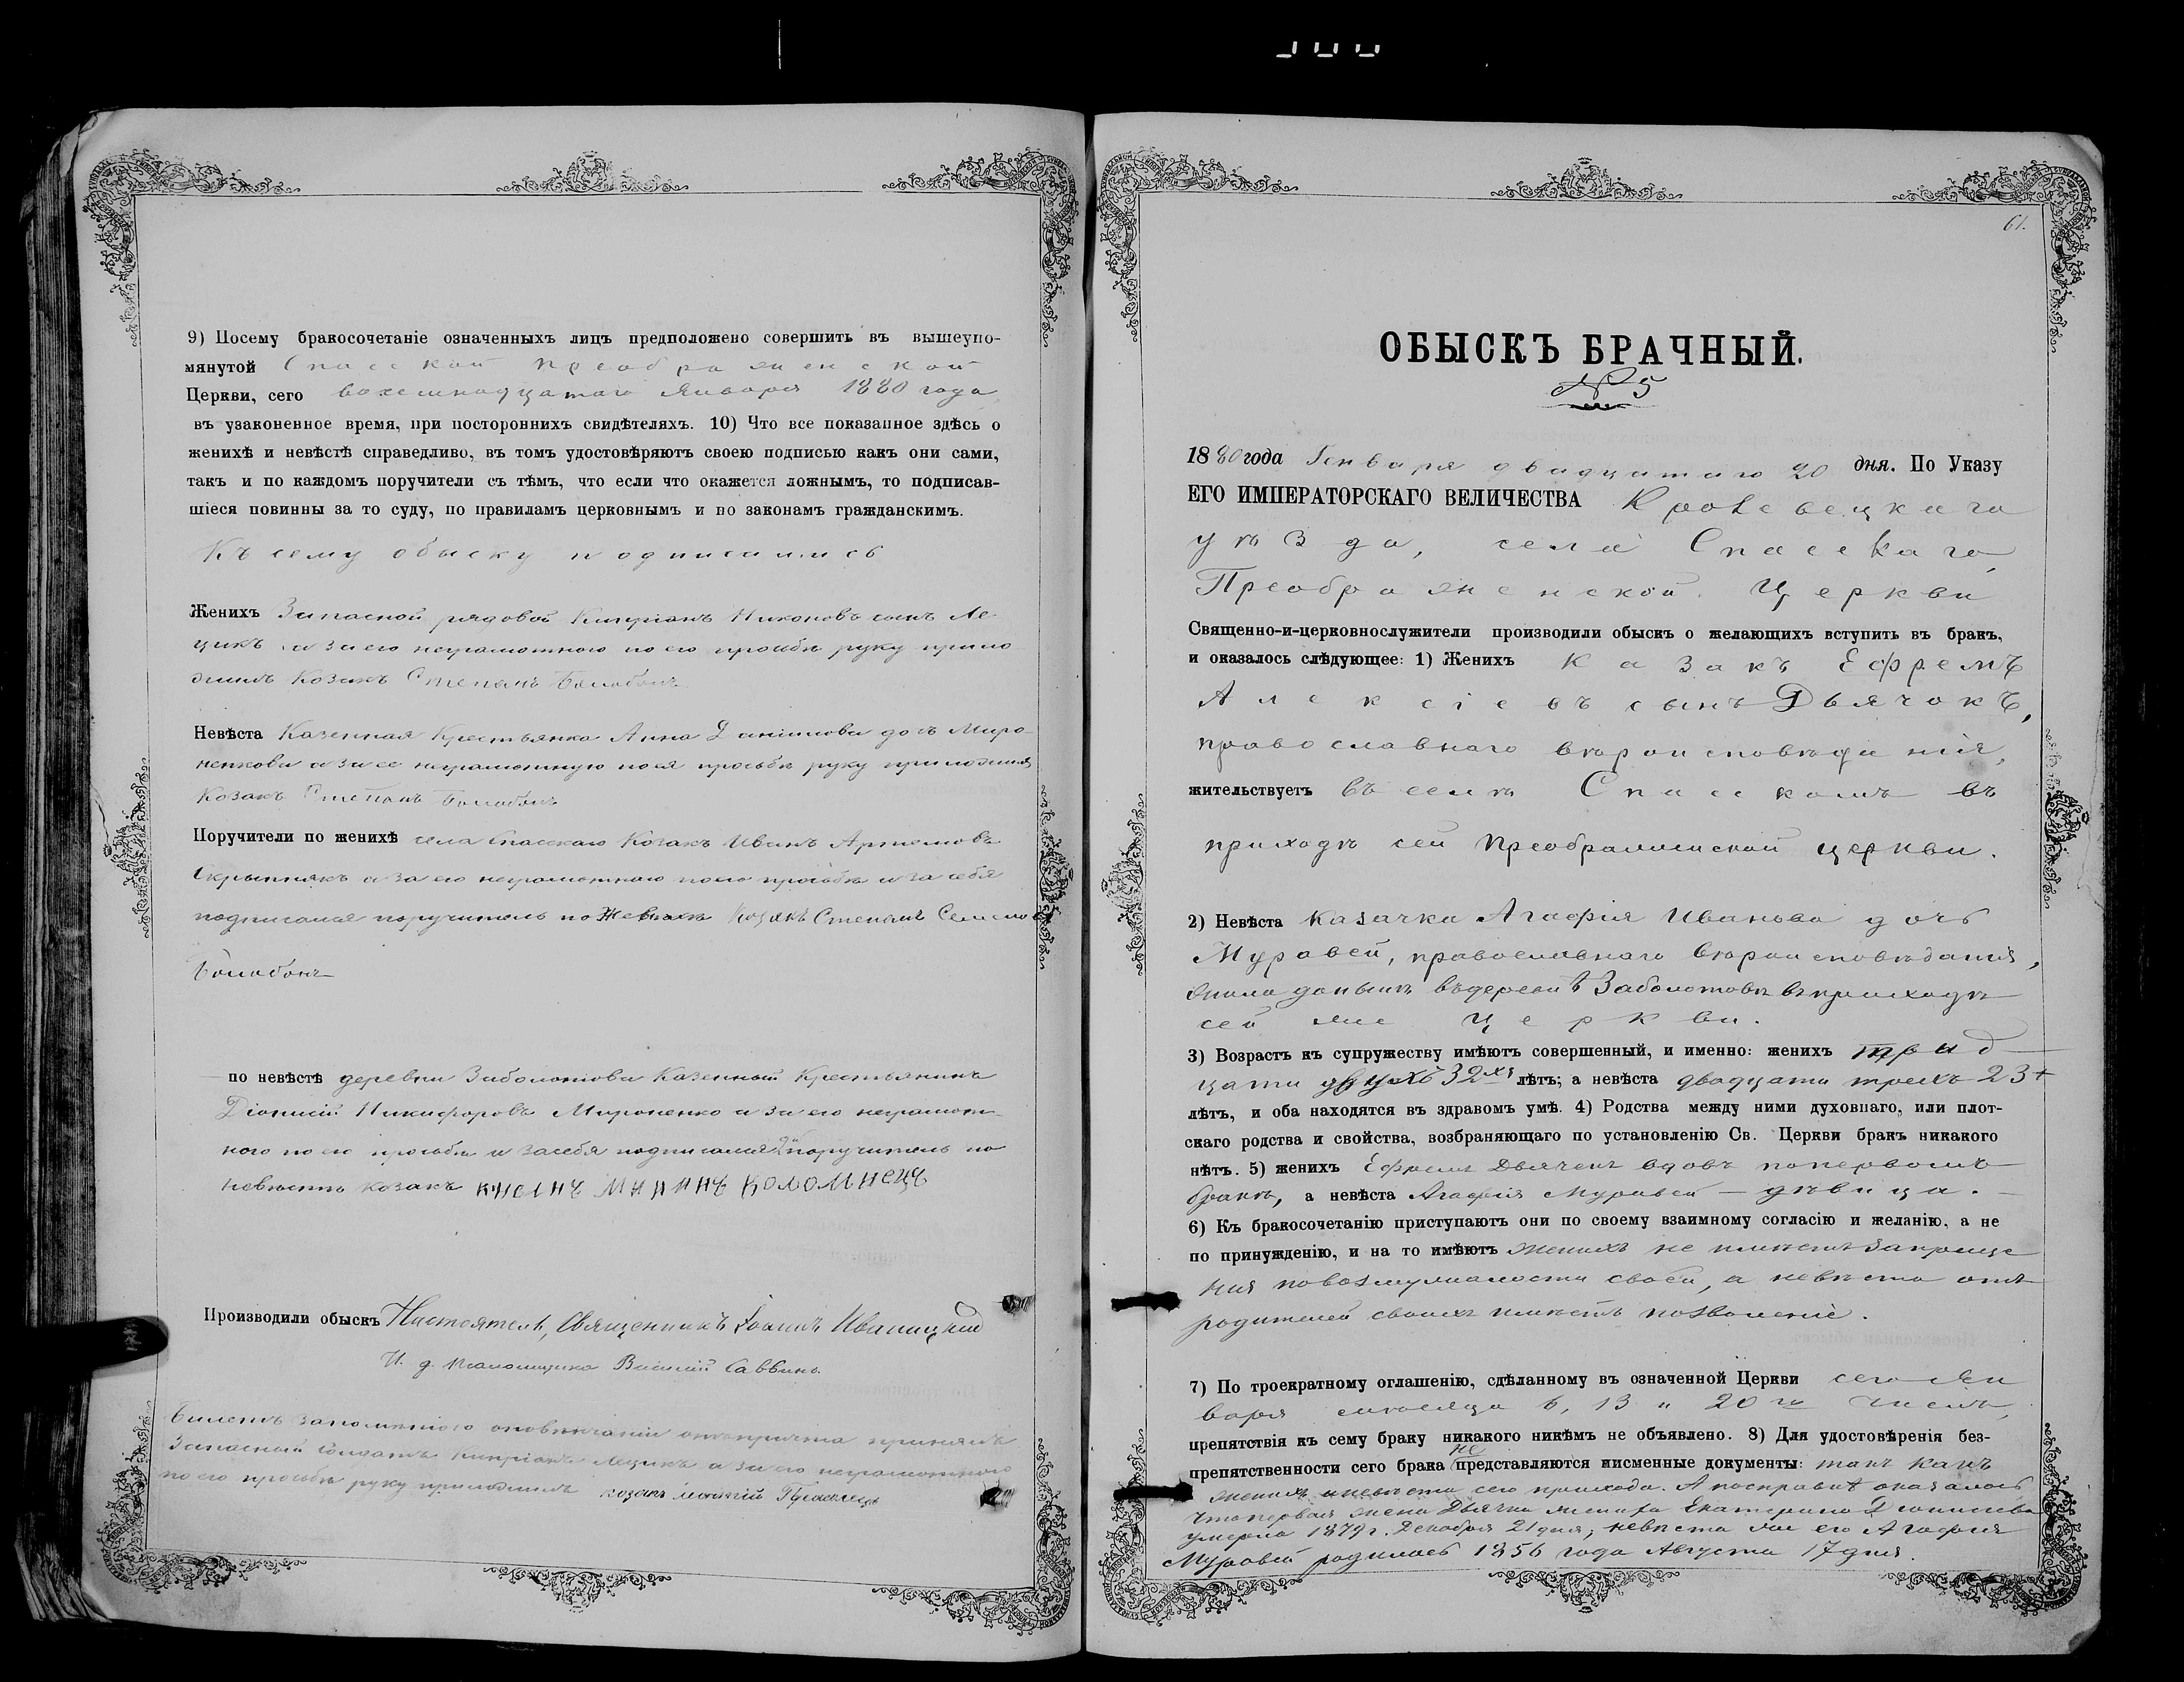 9) Посему бракосочетаніе означенныхъ лицъ предположено совершить въ вышеупо-
мянутой Спасской Преображенской
Церкви, сего восемнадцатаго Января 1880 года
въ узаконенное время, при постороннихъ свидѣтеляхъ. 10) Что все показанное здѣсь о
женихѣ и невѣстѣ справедливо, въ томъ удостовѣряютъ своею подписью какъ они сами,
такъ и по каждомъ поручители съ тѣмъ, что если что окажется ложнымъ, то подписав-
шіеся повинны за то суду, по правиламъ церковнымъ и по законамъ гражданскимъ.
Къ сему обыску подписались
Женихъ Запасной рядовой Кипріанъ Никоновъ сынъ Ле-
цикъ а за его неграмотного по его прозбѣ руку прило
жилъ Козакъ Степанъ Болобонъ
Невѣста Казенная Крестьянка Анна Данилова дочь Миро-
ненкова а за ее неграмотную по ея прозьбѣ руку приложилъ
Козакъ Степанъ Болобонъ
Поручители по женихѣ села Спасскаго Козакъ Иванъ Артемовъ
Скрыпникъ а за его неграмотнаго по его прозьбѣ и за себя
подписался поручитель по Женихѣ Козакъ Степанъ Семеновъ
Болобонъ
по невѣстѣ деревни Заболотова Казенный Крестьянинъ
Діонисій Никифоровъ Мироненко а за его неграмот-
ного по его прозьбѣ и за себя подписался 2й поручитель по
невѣстѣ козакъ МИНИНЪ КОЛОМІЕЦЪ
Производили обыскъ Настоятель, Священникъ Іоаннъ Иваницкій
И. д. псаломщика Василій Саввинъ.
билетъ запасного
Запасный Солдатъ Кипріанъ Лецикъ а за его неграмотного
по его прозьбѣ руку приложилъ козакъ
61.
ОБЫСКЪ БРАЧНЫЙ.
№ 5
1880 года Генваря двадцатаго 20 дня. По Указу
ЕГО ИМПЕРАТОРСКАГО ВЕЛИЧЕСТВА Кролевецкаго
уѣзда, села Спасскаго,
Преображенской Церкви
Священно-и-церковнослужители производили обыскъ о желающихъ вступить въ бракъ,
и оказалось слѣдующее: 1) Женихъ Казакъ Ефремъ
Алексіевъ сынъ Дьячокъ,
православнаго вѣроисповѣданія,
жительствуетъ въ селѣ Спасскомъ въ
приходѣ сей Преображенской церкви.
2) Невѣста Казачка Агафія Иванова дочь
Муравей, православнаго вѣроисповѣданія,
жила донынѣ въ деревнѣ Заболотовѣ въ приходѣ
сей же Церкви.
3) Возрастъ къ супружеству имѣютъ совершенный, и именно: женихъ трид-
цати двухъ 32хъ лѣтъ; а невѣста двадцати трехъ 23х
лѣтъ, и оба находятся въ здравомъ умѣ. 4) Родства между ними духовнаго, или плот-
скаго родства и свойства, возбраняющаго по установленію Св. Церкви бракъ никакого
нѣтъ. 5) женихъ Ефремъ Дьячекъ вдовъ по первомъ
бракѣ, а невѣста Агафія Муравей — дѣвица.
6) Къ бракосочетанію приступаютъ они по своему взаимному согласію и желанію, а не
по принужденію, и на то имѣютъ женихъ не имѣетъ запреще
нія по возмужалости своей, а невѣста отъ
родителей своихъ имѣетъ позволеніе.
7) По троекратному оглашенію, сдѣланному въ означенной Церкви сего Ян
варя мѣсяца 6, 13 и 20го числъ,
препятствія къ сему браку никакого никѣмъ не объявлено. 8) Для удостовѣренія без-
препятственности сего брака не представляются письменные документы: такъ какъ
женихъ и невѣста сего прихода. А по справкѣ оказалось
что первая жена Дьячка жениха Екатерина Діонисіева
умерла 1879 г. Декабря 21 дня, невѣста же его Агафія
Муравей родилась 1856 года Августа 17 дня.